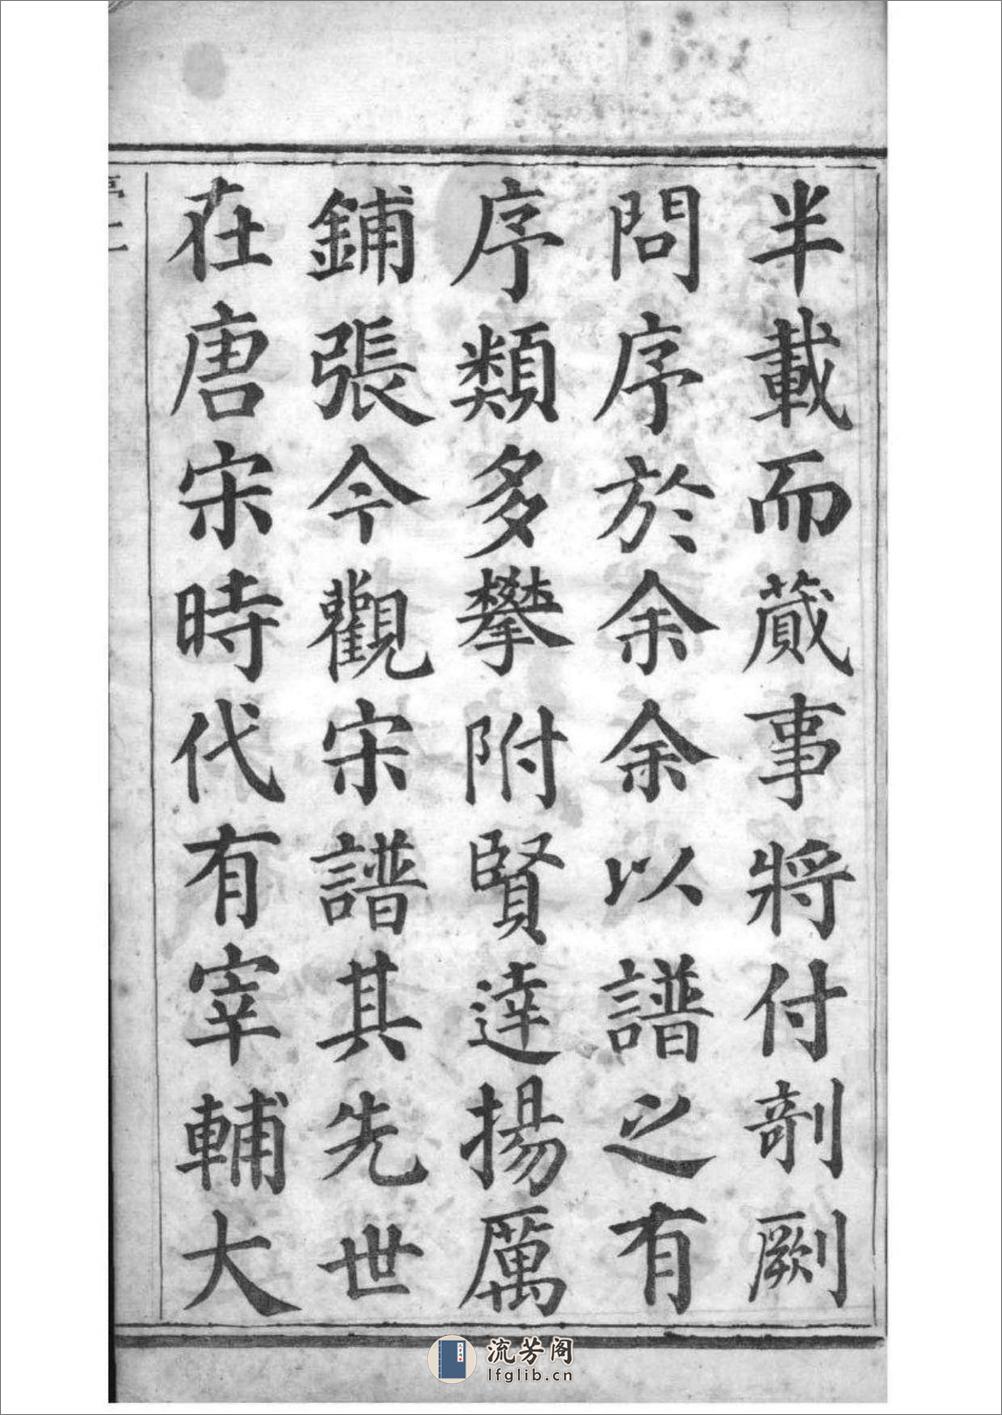 半載而蕆事將付剞劂
問序於余余以譜之有
序類多攀附賢達揚厲
鋪張今觀宋譜其先世
在唐宋時代有宰輔大
流芳阁
lfglib.cn